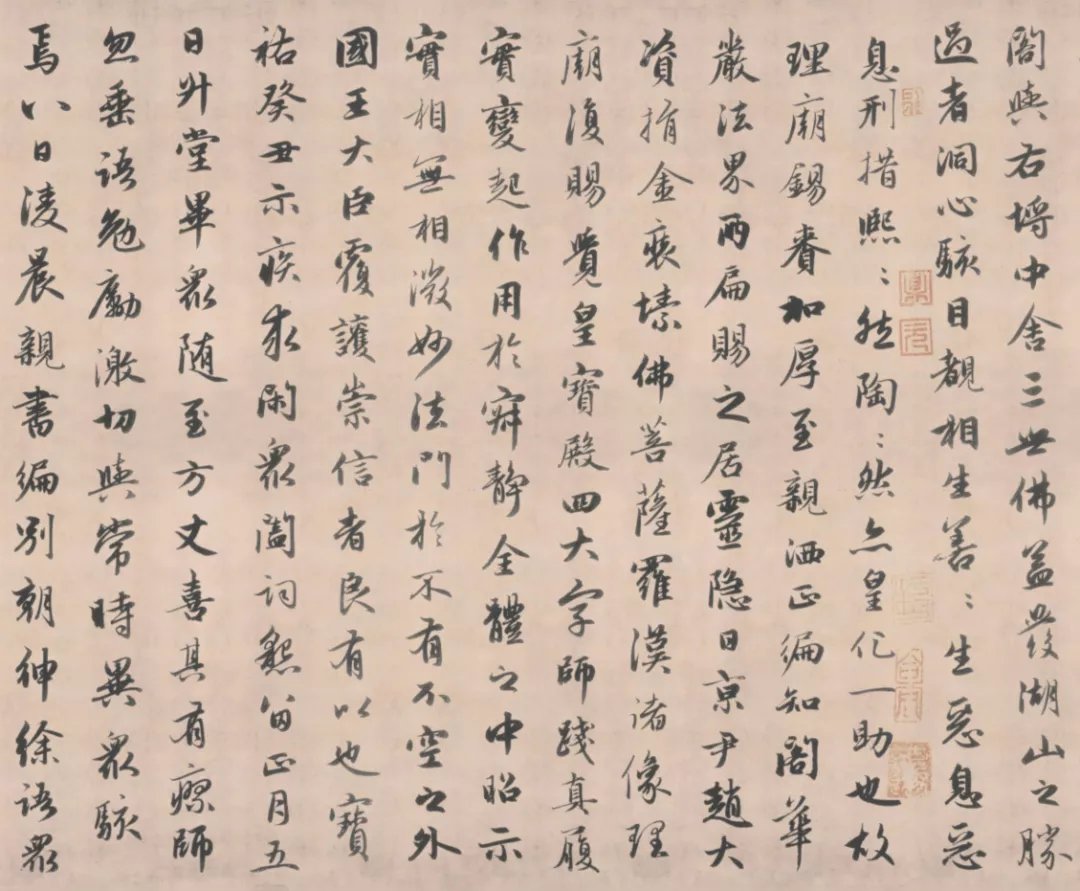 閣與右埒中舍三世佛蓋發湖山之勝
過者洞心駭目覩相生善〻生惡息惡
息刑措熙〻然陶〻然亦皇化一助也故
理廟錫賚加厚至親洒正徧知閣華
嚴法界兩扁賜之居靈隱日京尹趙大
資捐金裝塐佛菩薩羅漢諸像理
廟復賜覺皇寶殿四大字師踐真履
實變起作用於寂靜全體之中昭示
實相無相微妙法門於不有不空之外
國王大臣覆護崇信者良有以也寶
祐癸丑示疾求閑眾闔詞懇留正月五
日升堂畢眾随至方丈喜其有瘳師
忽垂語勉勵激切與常時異眾駭
焉八日淩晨親書徧別朝紳徐語眾